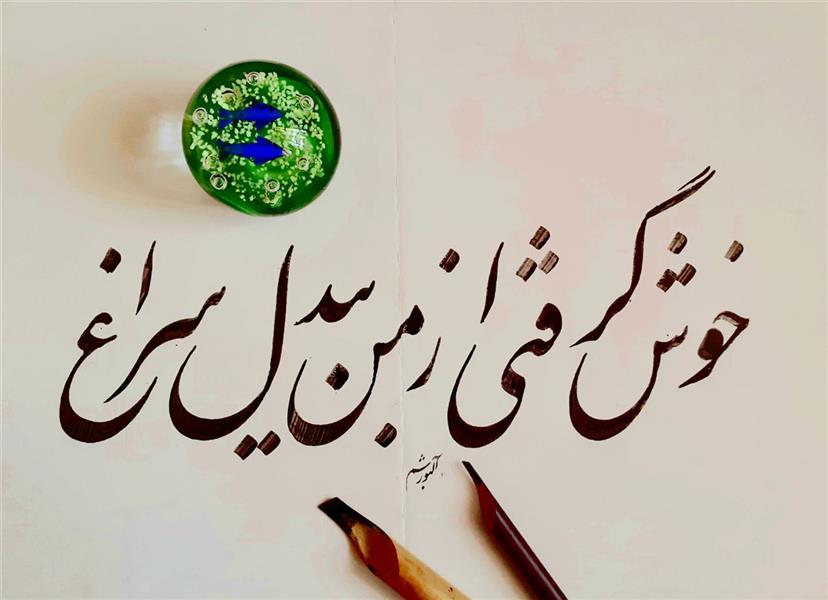 خوش گرفتی از من بیدل سراغ